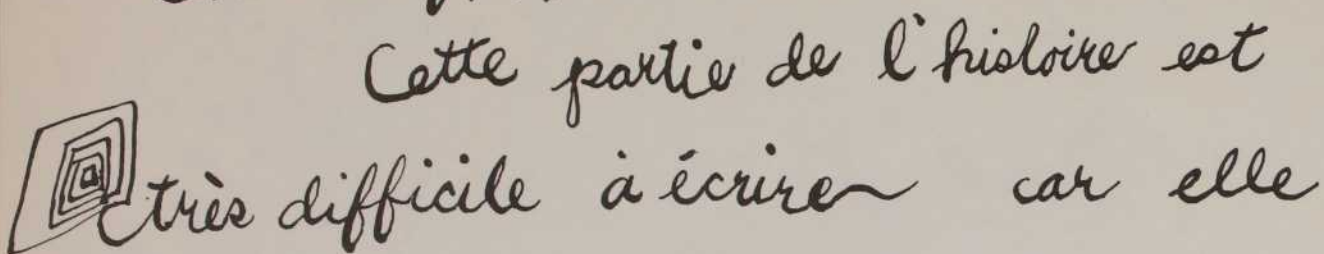 Cette partie de l'histoire est
très difficile à écrire car elle